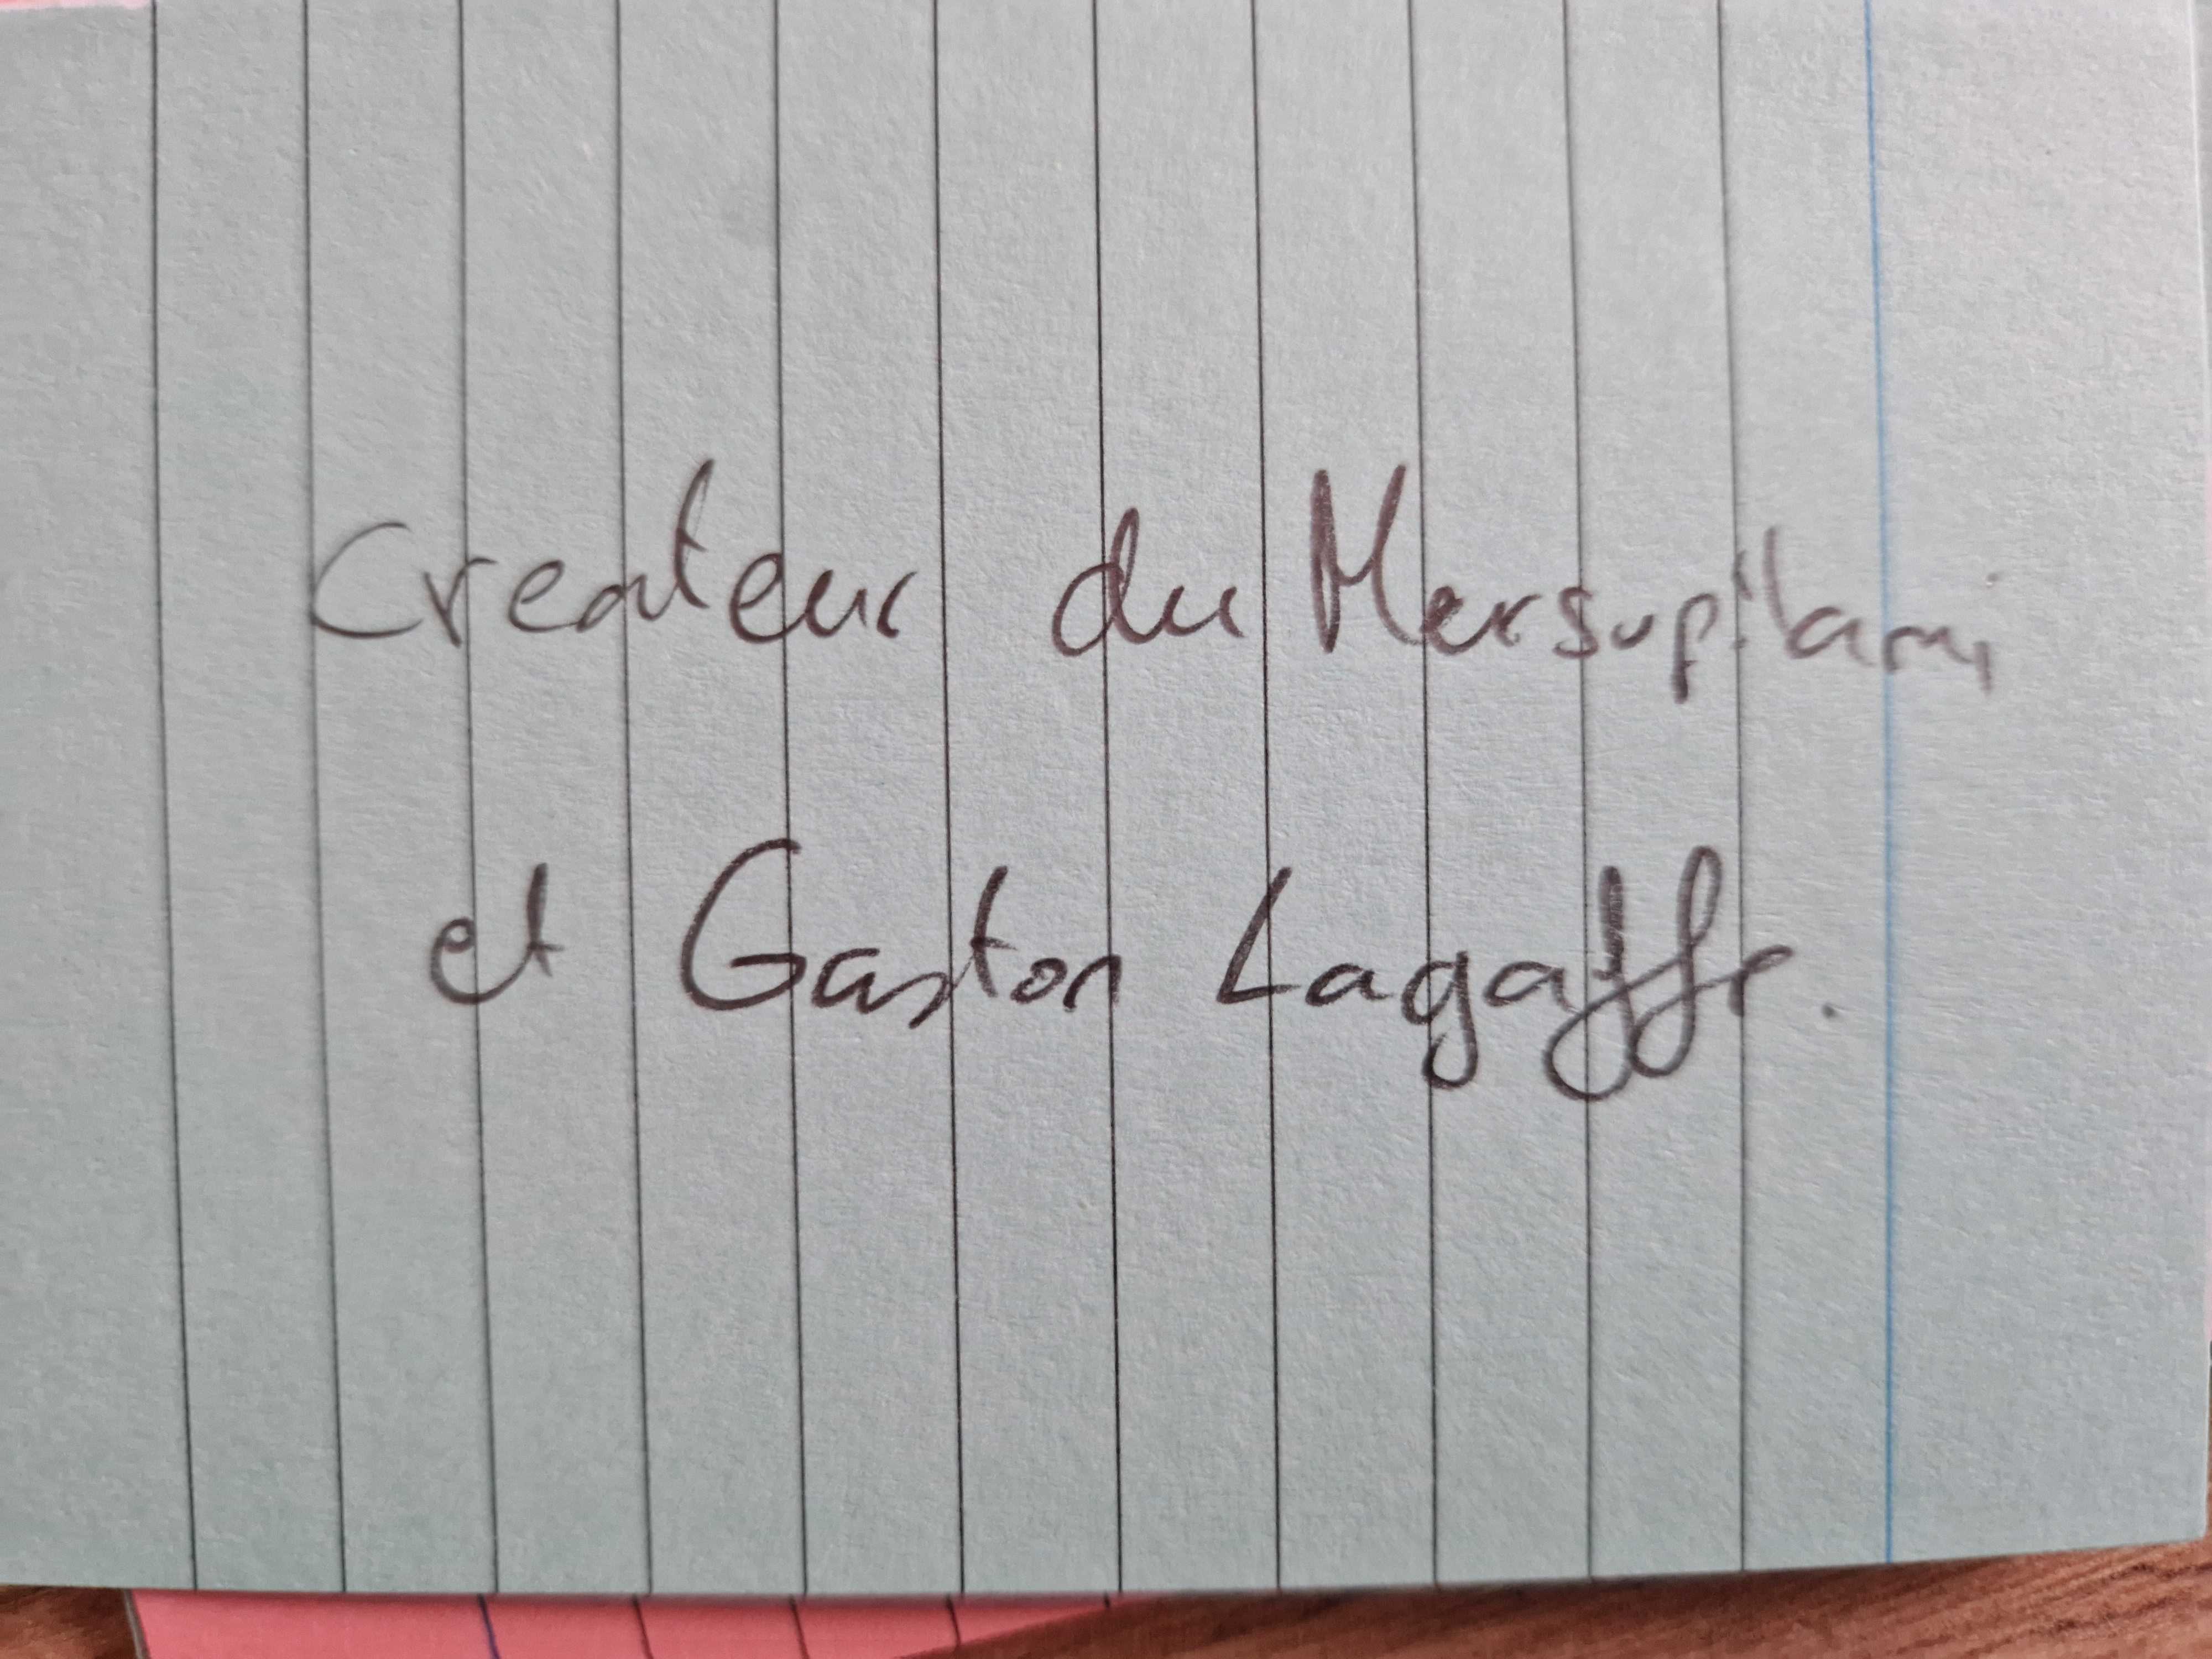 Createur du Mersupilami
et Gaston Lagaffe.